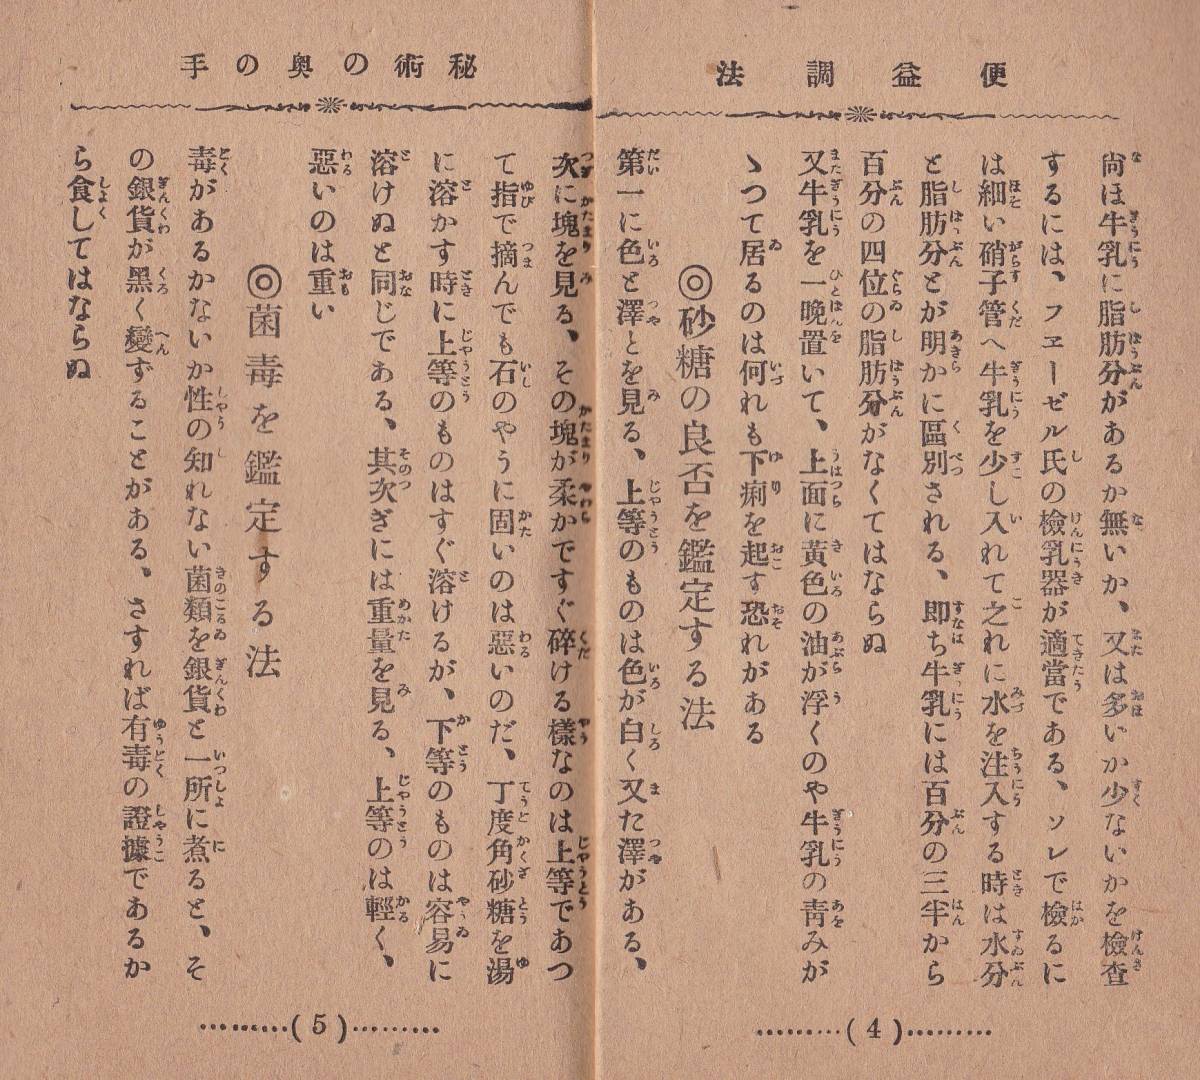 便益調法
尙ほ牛乳に脂肪分があるか無いか、又は多いか少ないかを檢査
するには、フエーゼル氏の檢乳器が適當である、ソレで檢るに
は細い硝子管へ牛乳を少し入れて之れに水を注入する時は水分
と脂肪分とが明かに區別される、卽ち牛乳には百分の三半から
百分の四位の脂肪分がなくてはならぬ
又牛乳を一晩置いて、上面に黃色の油が浮くのや牛乳の靑みが
ゝつて居るのは何れも下痢を起す恐れがある
◎砂糖の良否を鑑定する法
第一に色と澤とを見る、上等のものは色が白く又た澤がある、
(4)
秘術の奥の手
次に塊を見る、その塊が柔かですぐ碎ける樣なのは上等であつ
て指で摘んでも石のやうに固いのは惡いのだ、丁度角砂糖を湯
に溶かす時に上等のものはすぐ溶けるが、下等のものは容易に
溶けぬと同じである、其次ぎには重量を見る、上等のは輕く、
惡いのは重い
◎菌毒を鑑定する法
毒があるかないか性の知れない菌類を銀貨と一所に煮ると、そ
の銀貨が黑く變ずることがある、さすれば有毒の證據であるか
ら食してはならぬ
(5)